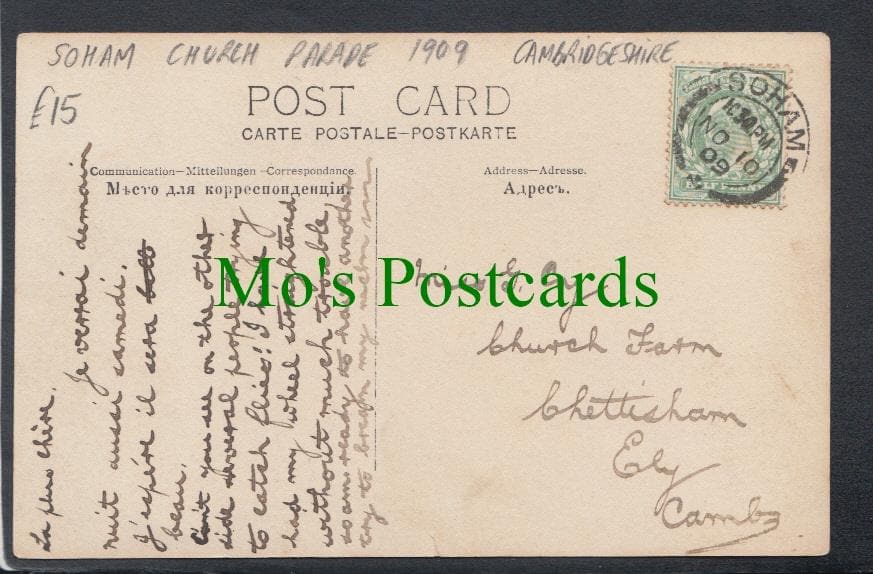 SOHAM CHURCH PARADE 1909 CAMBRIDGESHIRE
£15
POST CARD
CARTE POSTALE–POSTKARTE
Communication–Mitteilungen–Correspondance.
Мѣсто для корреспонденціи.
Address–Adresse.
Адресъ.
SOHAM
1.30PM
NO 10
09
La plus chère.
Je verrai demain
nuit aussi samedi.
J'espère il sera
beau.
Can't you see on the other
side several people trying
to catch flies! I have
had my wheel straightened
without much trouble
so am ready to have another
try to break my
Mo's Postcards
Church Farm
Chettisham
Ely
Cambs